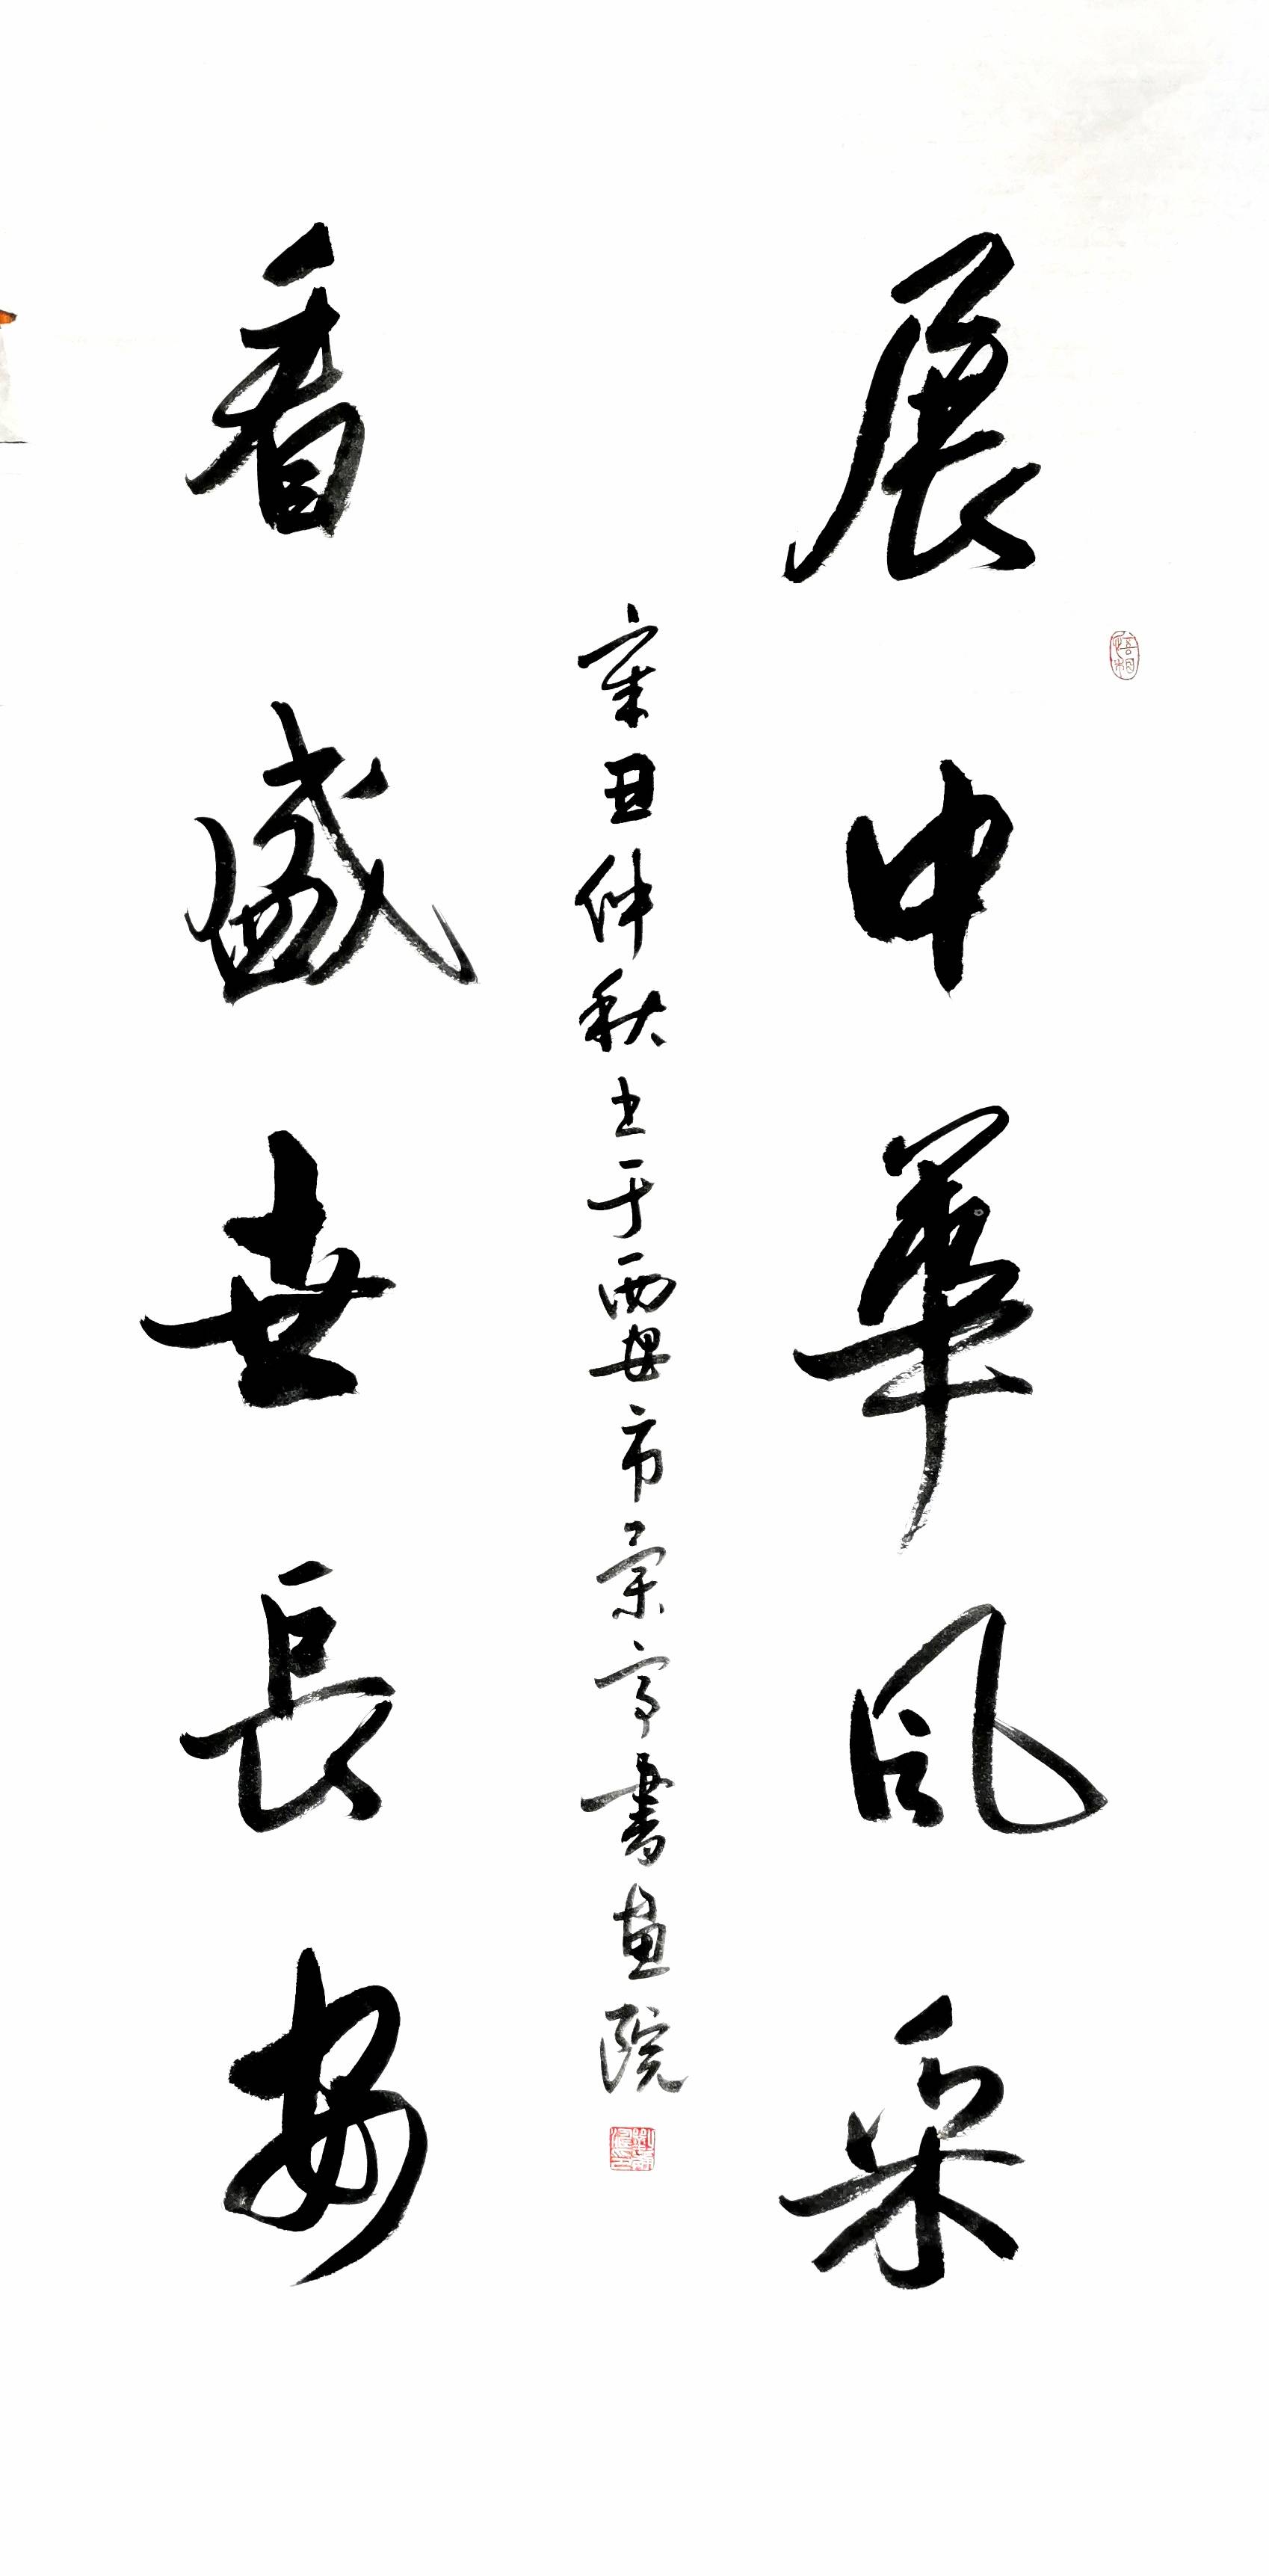 展中華風采
看盛世長安
辛丑仲秋书于西安市景亭書畫院